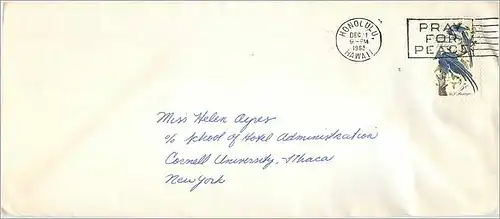 HONOLULU
DEC 11
9-PM
1963
HAWAII
PRAY
FOR
PEACE
U.S. Postage
Miss Helen Ayres
c/o School of Hotel Administration
Cornell University, Ithaca
New York